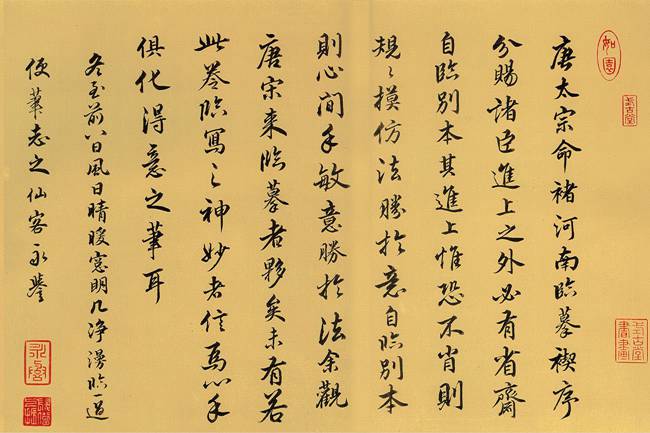 唐太宗命褚河南臨摹禊序
分賜諸臣進上之外必有省齋
自臨別本其進上惟恐不肖則
規〻摸仿法勝於意自臨別本
則心間手敏意勝於法余觀
唐宋來臨摹者夥矣未有若
此卷臨寫之神妙者信爲心手
俱化得意之筆耳
冬至前八日風日晴暖窓明几净漫臨一過
便筆志之仙客永譽
如意